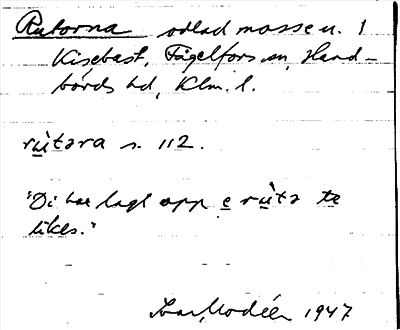 Rutorna odlad mosse u. 1
Kisebast, Fågelfors sn, Hand-
börds hd, Klm. l.
rùtəra s. 112.
"Di har lagt opp e rùtə te
likes."
Ivar Modéer 1947